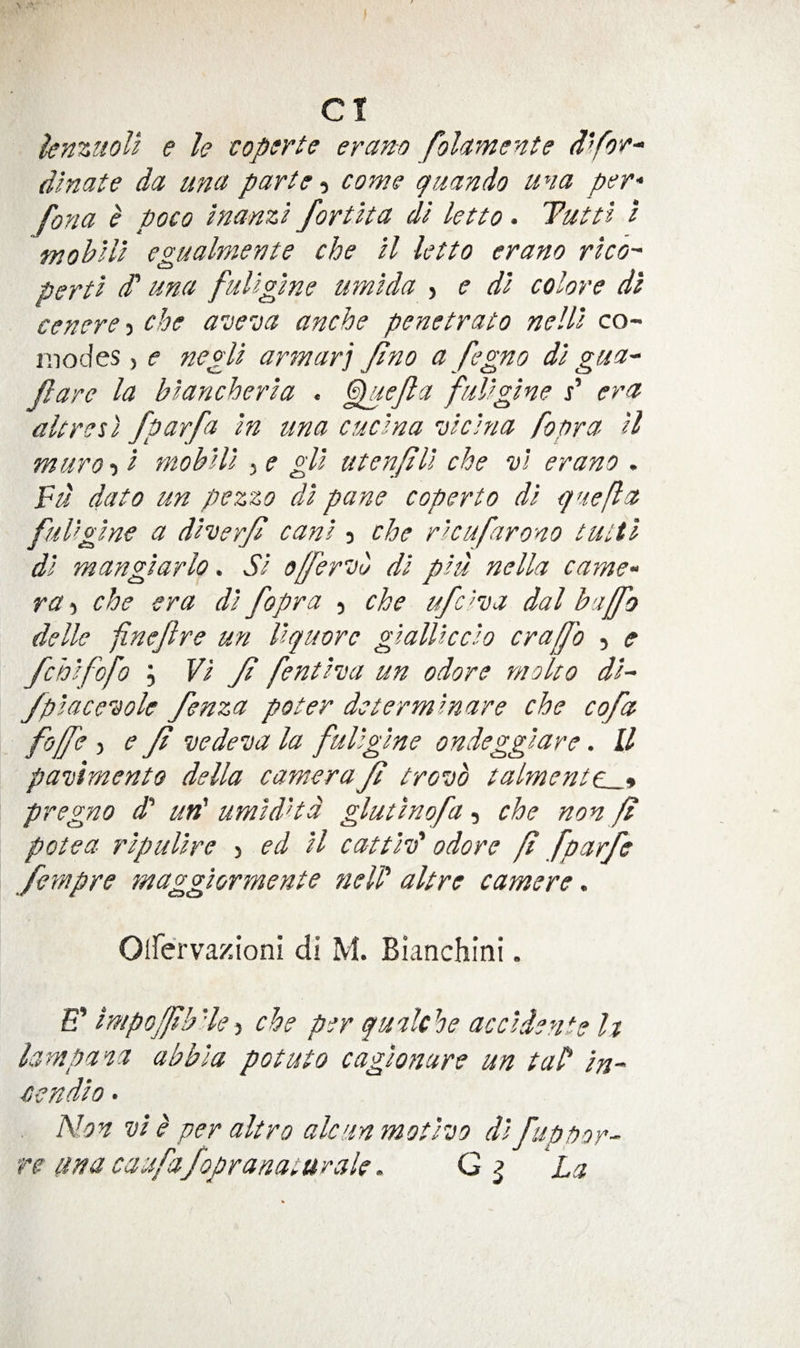 CI
lenzuoli e le coperte erano ſolamente diſor-
dinate da una parte, come quando una per-
ſona è poco inanzi ſortita di letto. Tutti i
mobili egualmente che il letto erano rico-
perti d' una fuligine umida, e di colore di
cenere, che aveva anche penetrato nelli co-
modes, e negli armarj ſino a ſegno di gua-
ſtare la biancheria. Queſta fuligine s' era
altresì ſparſa in una cucina vicina ſopra il
muro, i mobili, e gli utenſili che vi erano.
Fù dato un pezzo di pane coperto di queſta
fuligine a diverſi cani, che ricuſarono tutti
di mangiarlo. Si oſſervò di più nella came-
ra, che era di ſopra, che uſciva dal baſſo
delle fineſtre un liquore gialliccio craſſo, e
ſchifoſo; Vi ſi ſentiva un odore molto di-
ſpiacevole ſenza poter determinare che coſa
foſſe, e ſi vedeva la fuligine ondeggiare. Il
pavimento della camera ſi trovò talmente,
pregno d' un' umidità glutinoſa, che non ſi
potea ripulire, ed il cattiv' odore ſi ſparſe
ſempre maggiormente nell' altre camere.
Oſſervazioni di M. Bianchini.
E' impoſſibile, che per qualche accidente la
lampana abbia potuto cagionare un tal' in-
cendio.
Non vi è per altro alcun motivo di ſuppor-
re una cauſa ſopranaturale. G 3 La